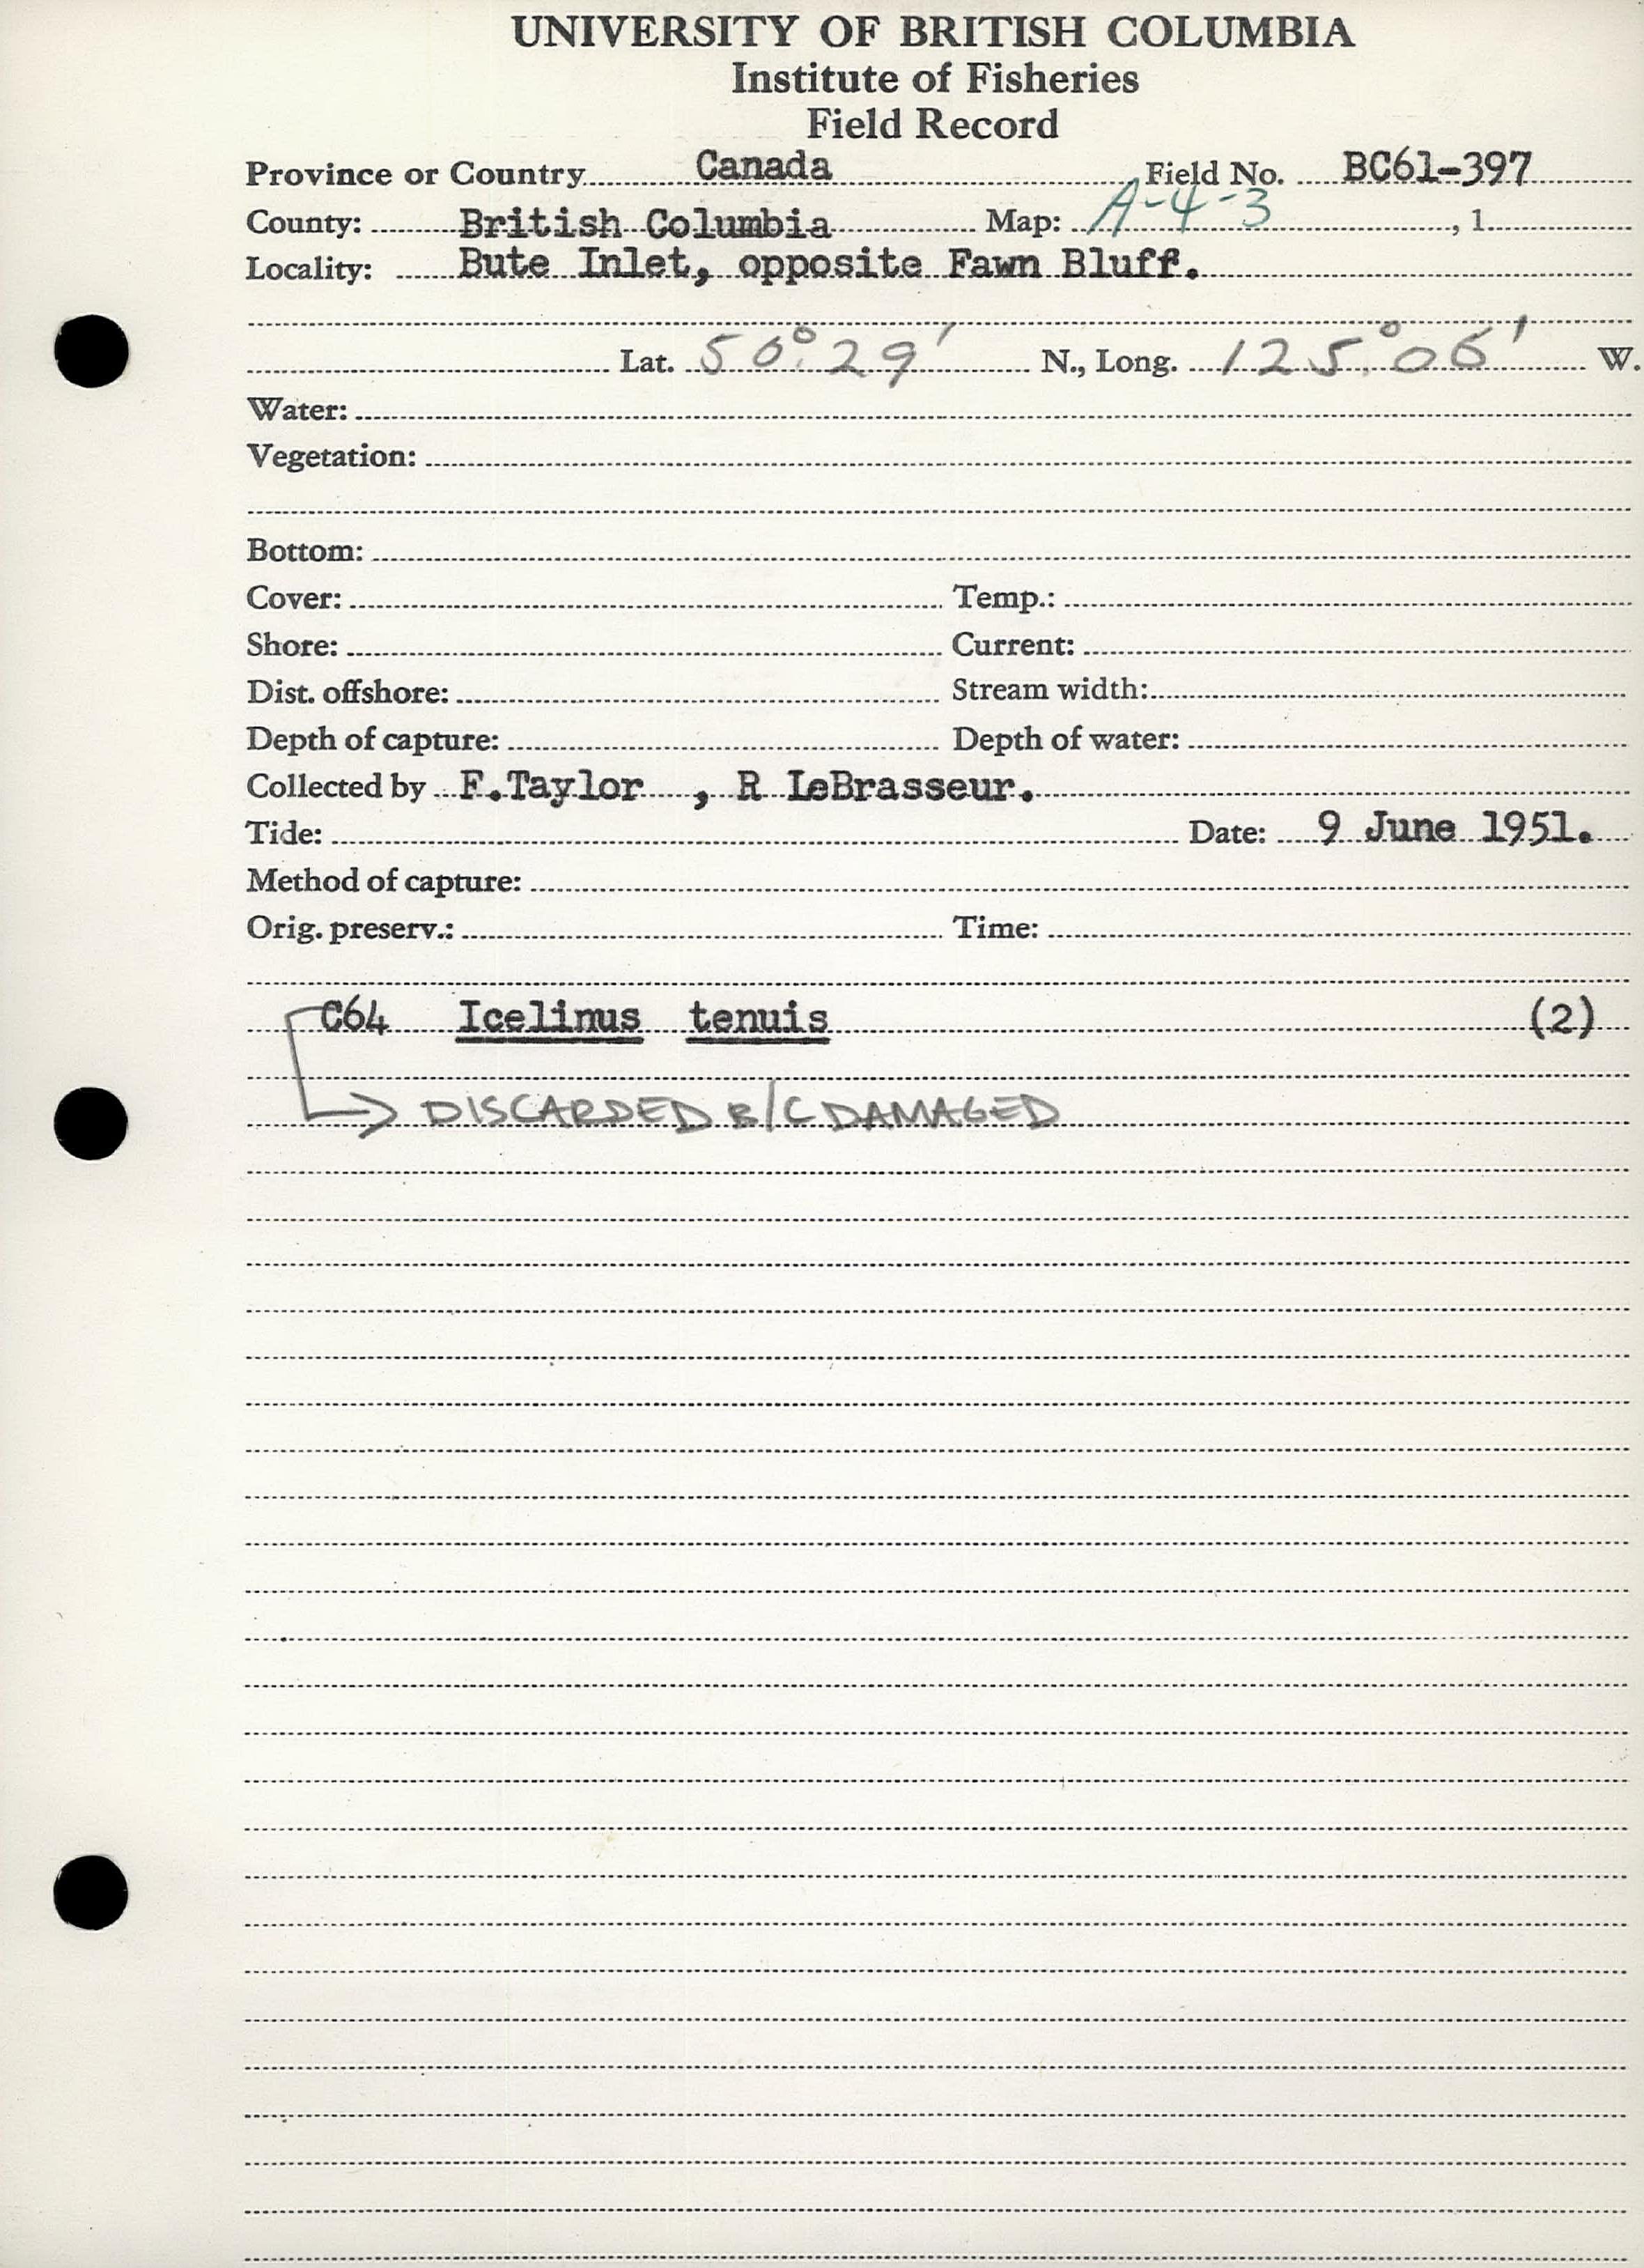 UNIVERSITY OF BRITISH COLUMBIA
Institute of Fisheries
Field Record
Province or Country Canada Field No. BC61-397
County: British Columbia Map: A-4-3 , 1
Locality: Bute Inlet, opposite Fawn Bluff.
Lat. 50° 29' N., Long. 125° 06' W.
Water:
Vegetation:
Bottom:
Cover: Temp.:
Shore: Current:
Dist. offshore: Stream width:
Depth of capture: Depth of water:
Collected by F.Taylor , R LeBrasseur.
Tide: Date: 9 June 1951.
Method of capture:
Orig. preserv.: Time:
C64 Icelinus tenuis (2)
→ DISCARDED B/C DAMAGED